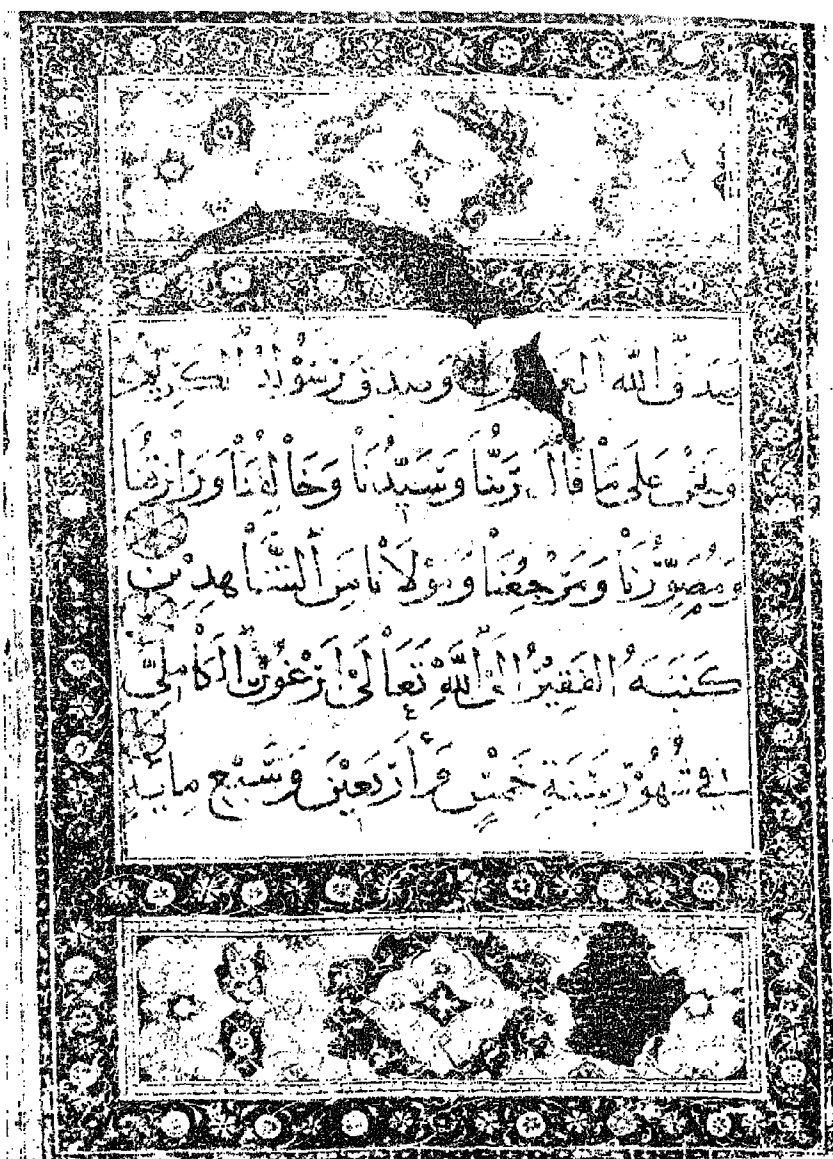 صَدَقَ اللّٰهُ الْعَظِيمُ وَصَدَقَ رَسُولُهُ الْكَرِيْمُ
وَنَحْنُ عَلَى مَا قَالَ رَبُّنَا وَسَيِّدُنَا وَخَالِقُنَا وَرَازِقُنَا
وَمُصَوِّرُنَا وَمَرْجِعُنَا وَمَوْلَانَا مِنَ الشَّاهِدِيْنَ
كَتَبَهُ الْفَقِيْرُ اِلَى اللّٰهِ تَعَالَى اَرْغُوْنُ الْكَامِلِيُّ
فِي شُهُوْرِ سَنَةِ خَمْسٍ وَأَرْبَعِيْنَ وَسَبْعِ مِائَةٍ